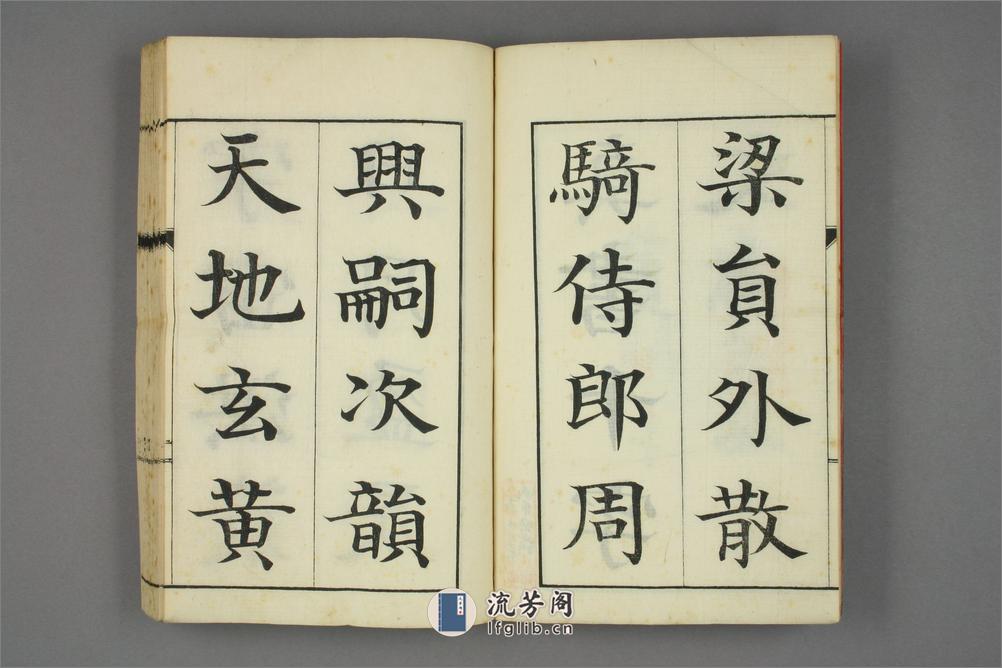 梁貟外散
騎侍郎周
興嗣次韻
天地玄黄
流芳阁
lfglib.cn